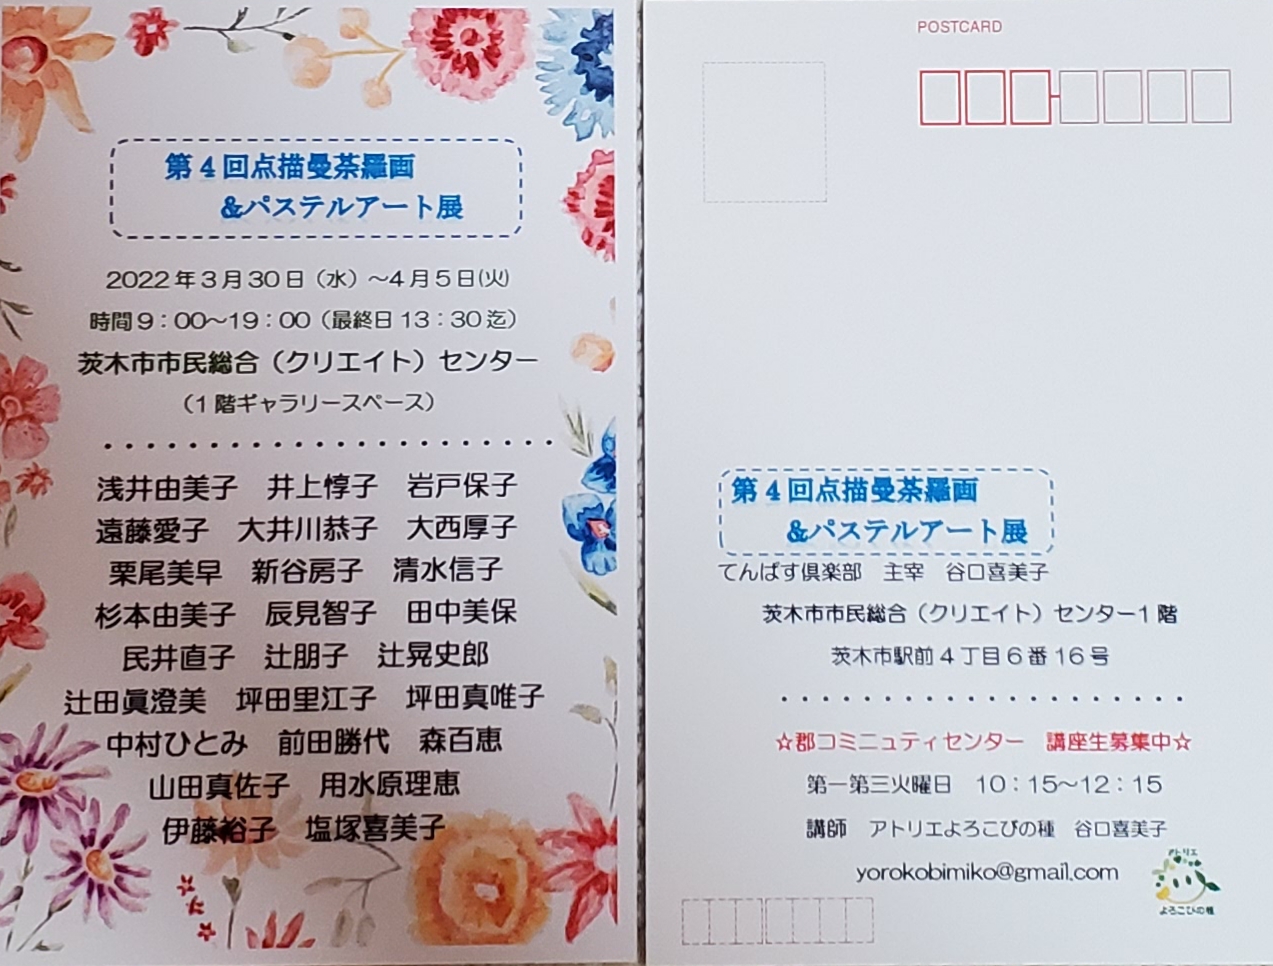 第4回点描曼荼羅画
&パステルアート展
2022年3月30日（水）～4月5日(火)
時間9：00～19：00（最終日13：30迄）
茨木市市民総合（クリエイト）センター
（1階ギャラリースペース）
浅井由美子　井上惇子　岩戸保子
遠藤愛子　大井川恭子　大西厚子
栗尾美早　新谷房子　清水信子
杉本由美子　辰見智子　田中美保
民井直子　辻朋子　辻晃史郎
辻田眞澄美　坪田里江子　坪田真唯子
中村ひとみ　前田勝代　森百恵
山田真佐子　用水原理恵
伊藤裕子　塩塚喜美子
POSTCARD
第4回点描曼荼羅画
&パステルアート展
てんぱす倶楽部　主宰　谷口喜美子
茨木市市民総合（クリエイト）センター1階
茨木市駅前4丁目6番16号
☆郡コミニュティセンター　講座生募集中☆
第一第三火曜日　10：15～12：15
講師　アトリエよろこびの種　谷口喜美子
yorokobimiko@gmail.com
アトリエ
よろこびの種